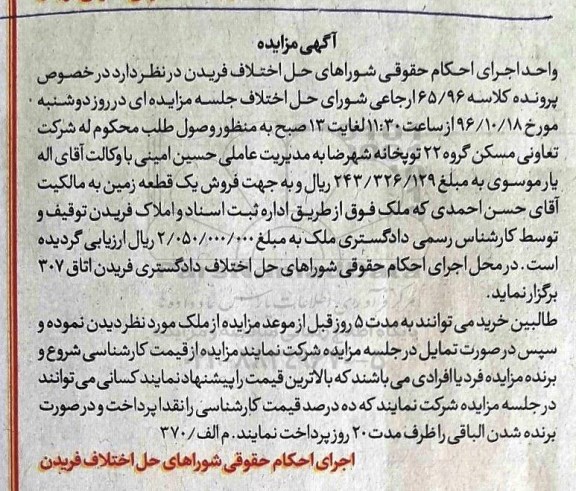 آگهی مزایده
واحد اجرای احکام حقوقی شوراهای حل اختلاف فریدن در نظر دارد در خصوص
پرونده کلاسه ۶۵/۹۶ ارجاعی شورای حل اختلاف جلسه مزایده ای در روز دوشنبه
مورخ ۹۶/۱۰/۱۸ از ساعت ۱۱:۳۰ لغایت ۱۳ صبح به منظور وصول طلب محکوم له شرکت
تعاونی مسکن گروه ۲۲ توپخانه شهرضا به مدیریت عاملی حسین امینی با وکالت آقای اله
یار موسوی به مبلغ ۲۴۳/۳۲۶/۱۲۹ ریال و به جهت فروش یک قطعه زمین به مالکیت
آقای حسن احمدی که ملک فوق از طریق اداره ثبت اسناد و املاک فریدن توقیف و
توسط کارشناس رسمی دادگستری ملک به مبلغ ۲/۰۵۰/۰۰۰/۰۰۰ ریال ارزیابی گردیده
است . در محل اجرای احکام حقوقی شوراهای حل اختلاف دادگستری فریدن اتاق ۳۰۷
برگزار نماید.
طالبین خرید می توانند به مدت ۵ روز قبل از موعد مزایده از ملک مورد نظر دیدن نموده و
سپس در صورت تمایل در جلسه مزایده شرکت نمایند مزایده از قیمت کارشناسی شروع و
برنده مزایده فرد یا افرادی می باشند که بالاترین قیمت را پیشنهاد نمایند کسانی می توانند
در جلسه مزایده شرکت نمایند که ده درصد قیمت کارشناسی را نقدا پرداخت و در صورت
برنده شدن الباقی را ظرف مدت ۲۰ روز پرداخت نمایند. م الف/۳۷۰
اجرای احکام حقوقی شوراهای حل اختلاف فریدن